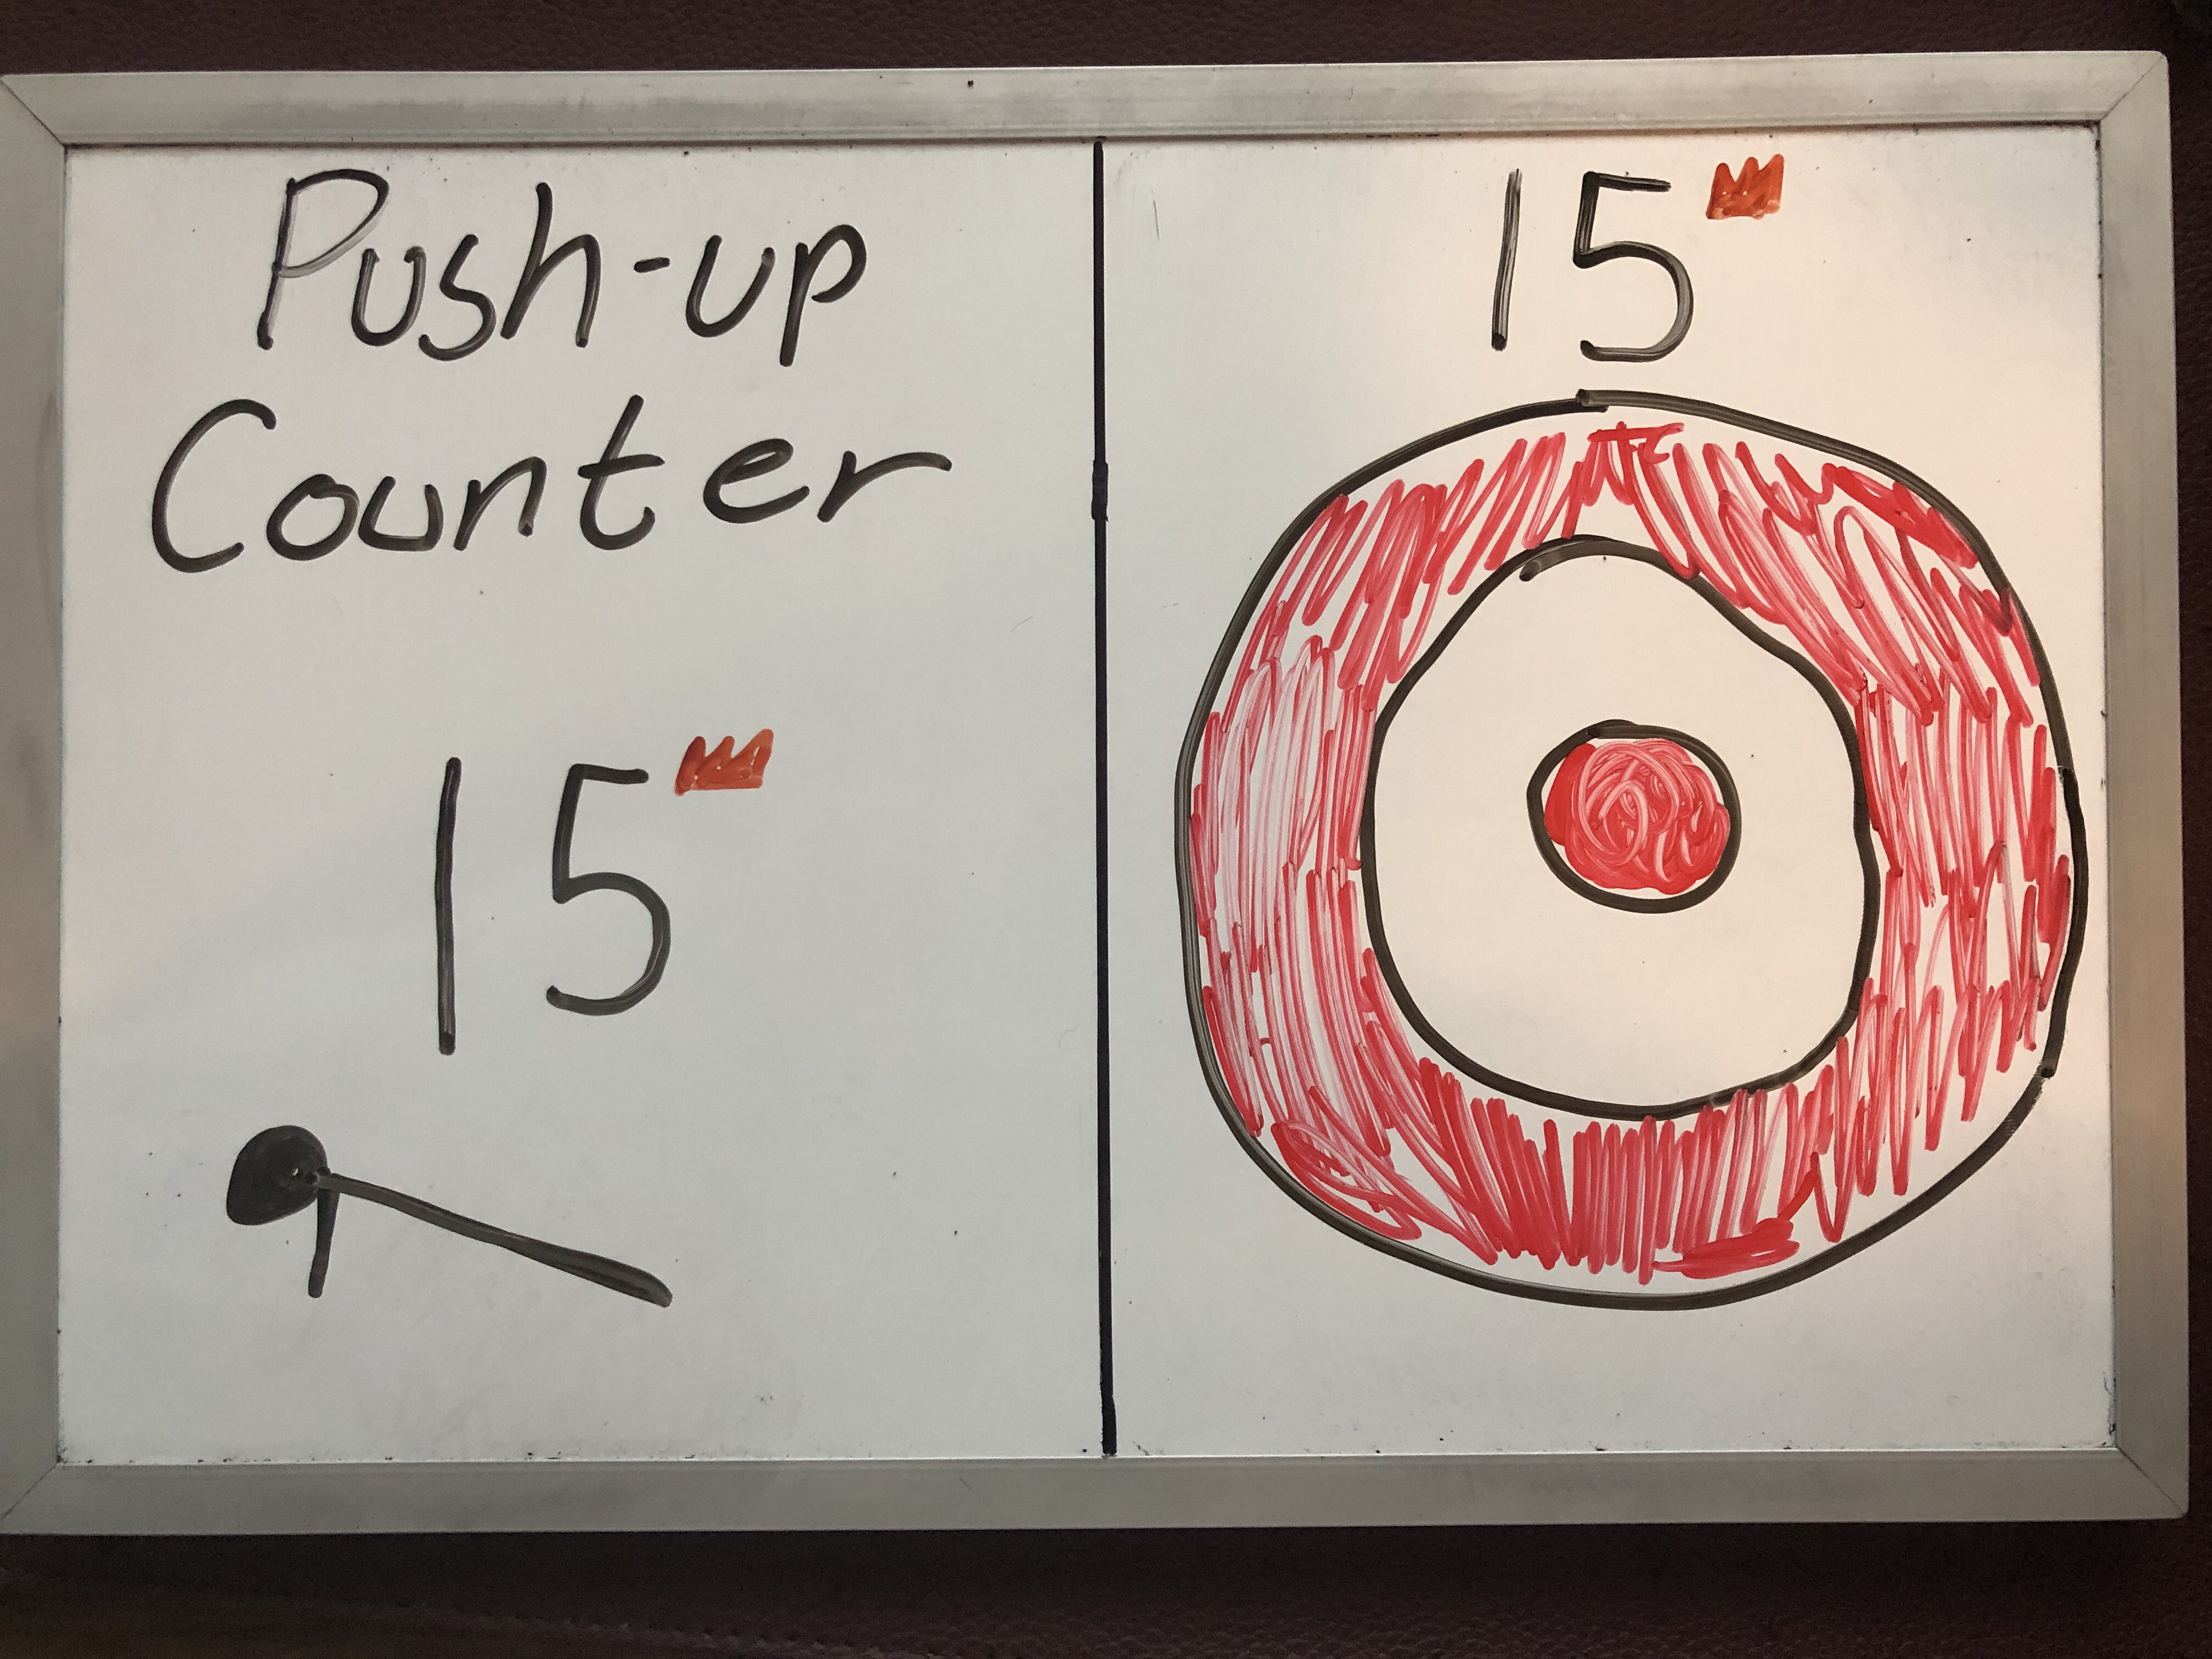 Push-up
Counter
15
15